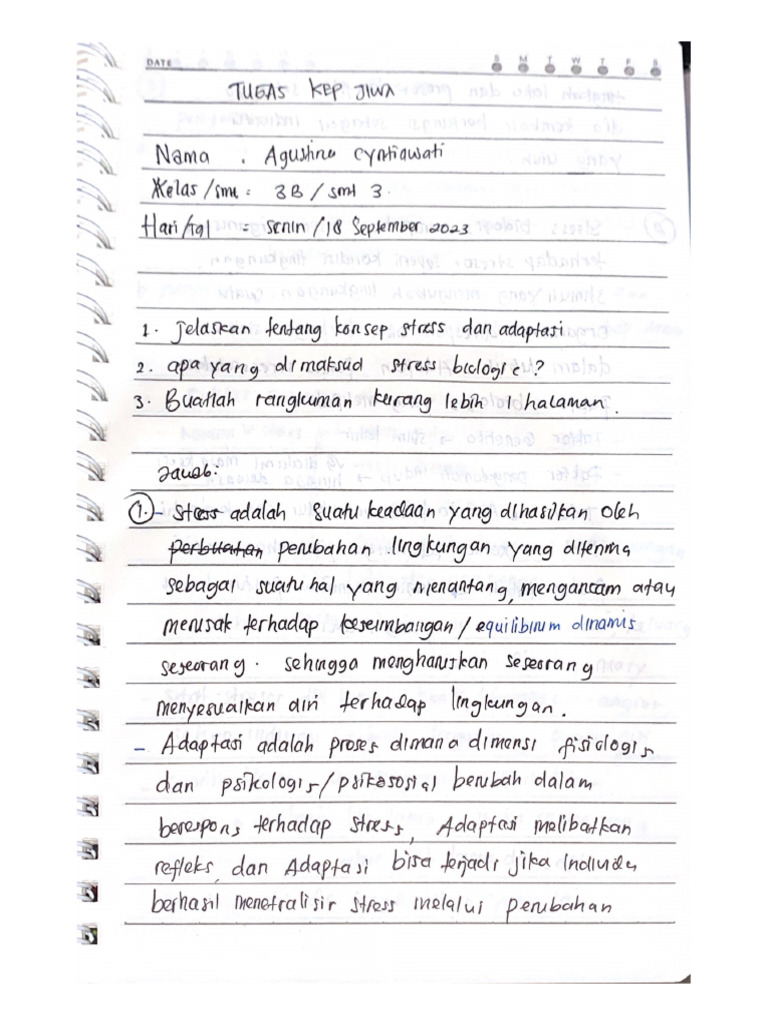 DATE S M T W T F S
TUGAS KEP JIWA
Nama . Agustina Cyntiawati
Kelas/smt : 3B / smt 3.
Hari/tgl = senin /18 September 2023
1. Jelaskan tentang konsep stress dan adaptasi
2. apa yang di maksud stress biologis?
3. Buatlah rangkuman kurang lebih 1 halaman.
Jawab:
1. - stress adalah suatu keadaan yang dihasilkan oleh
perbuatan perubahan lingkungan yang diterima
sebagai suatu hal yang menantang, mengancam atau
merusak terhadap keseimbangan / equilibrium dinamis
seseorang. sehingga mengharuskan seseorang
menyesuaikan diri terhadap lingkungan.
- Adaptasi adalah proses dimana dimensi fisiologis
dan psikologis/psikososial berubah dalam
berespons terhadap stress, Adaptasi melibatkan
refleks, dan Adaptasi bisa terjadi jika Individu
berhasil menetralisir stress melalui perubahan